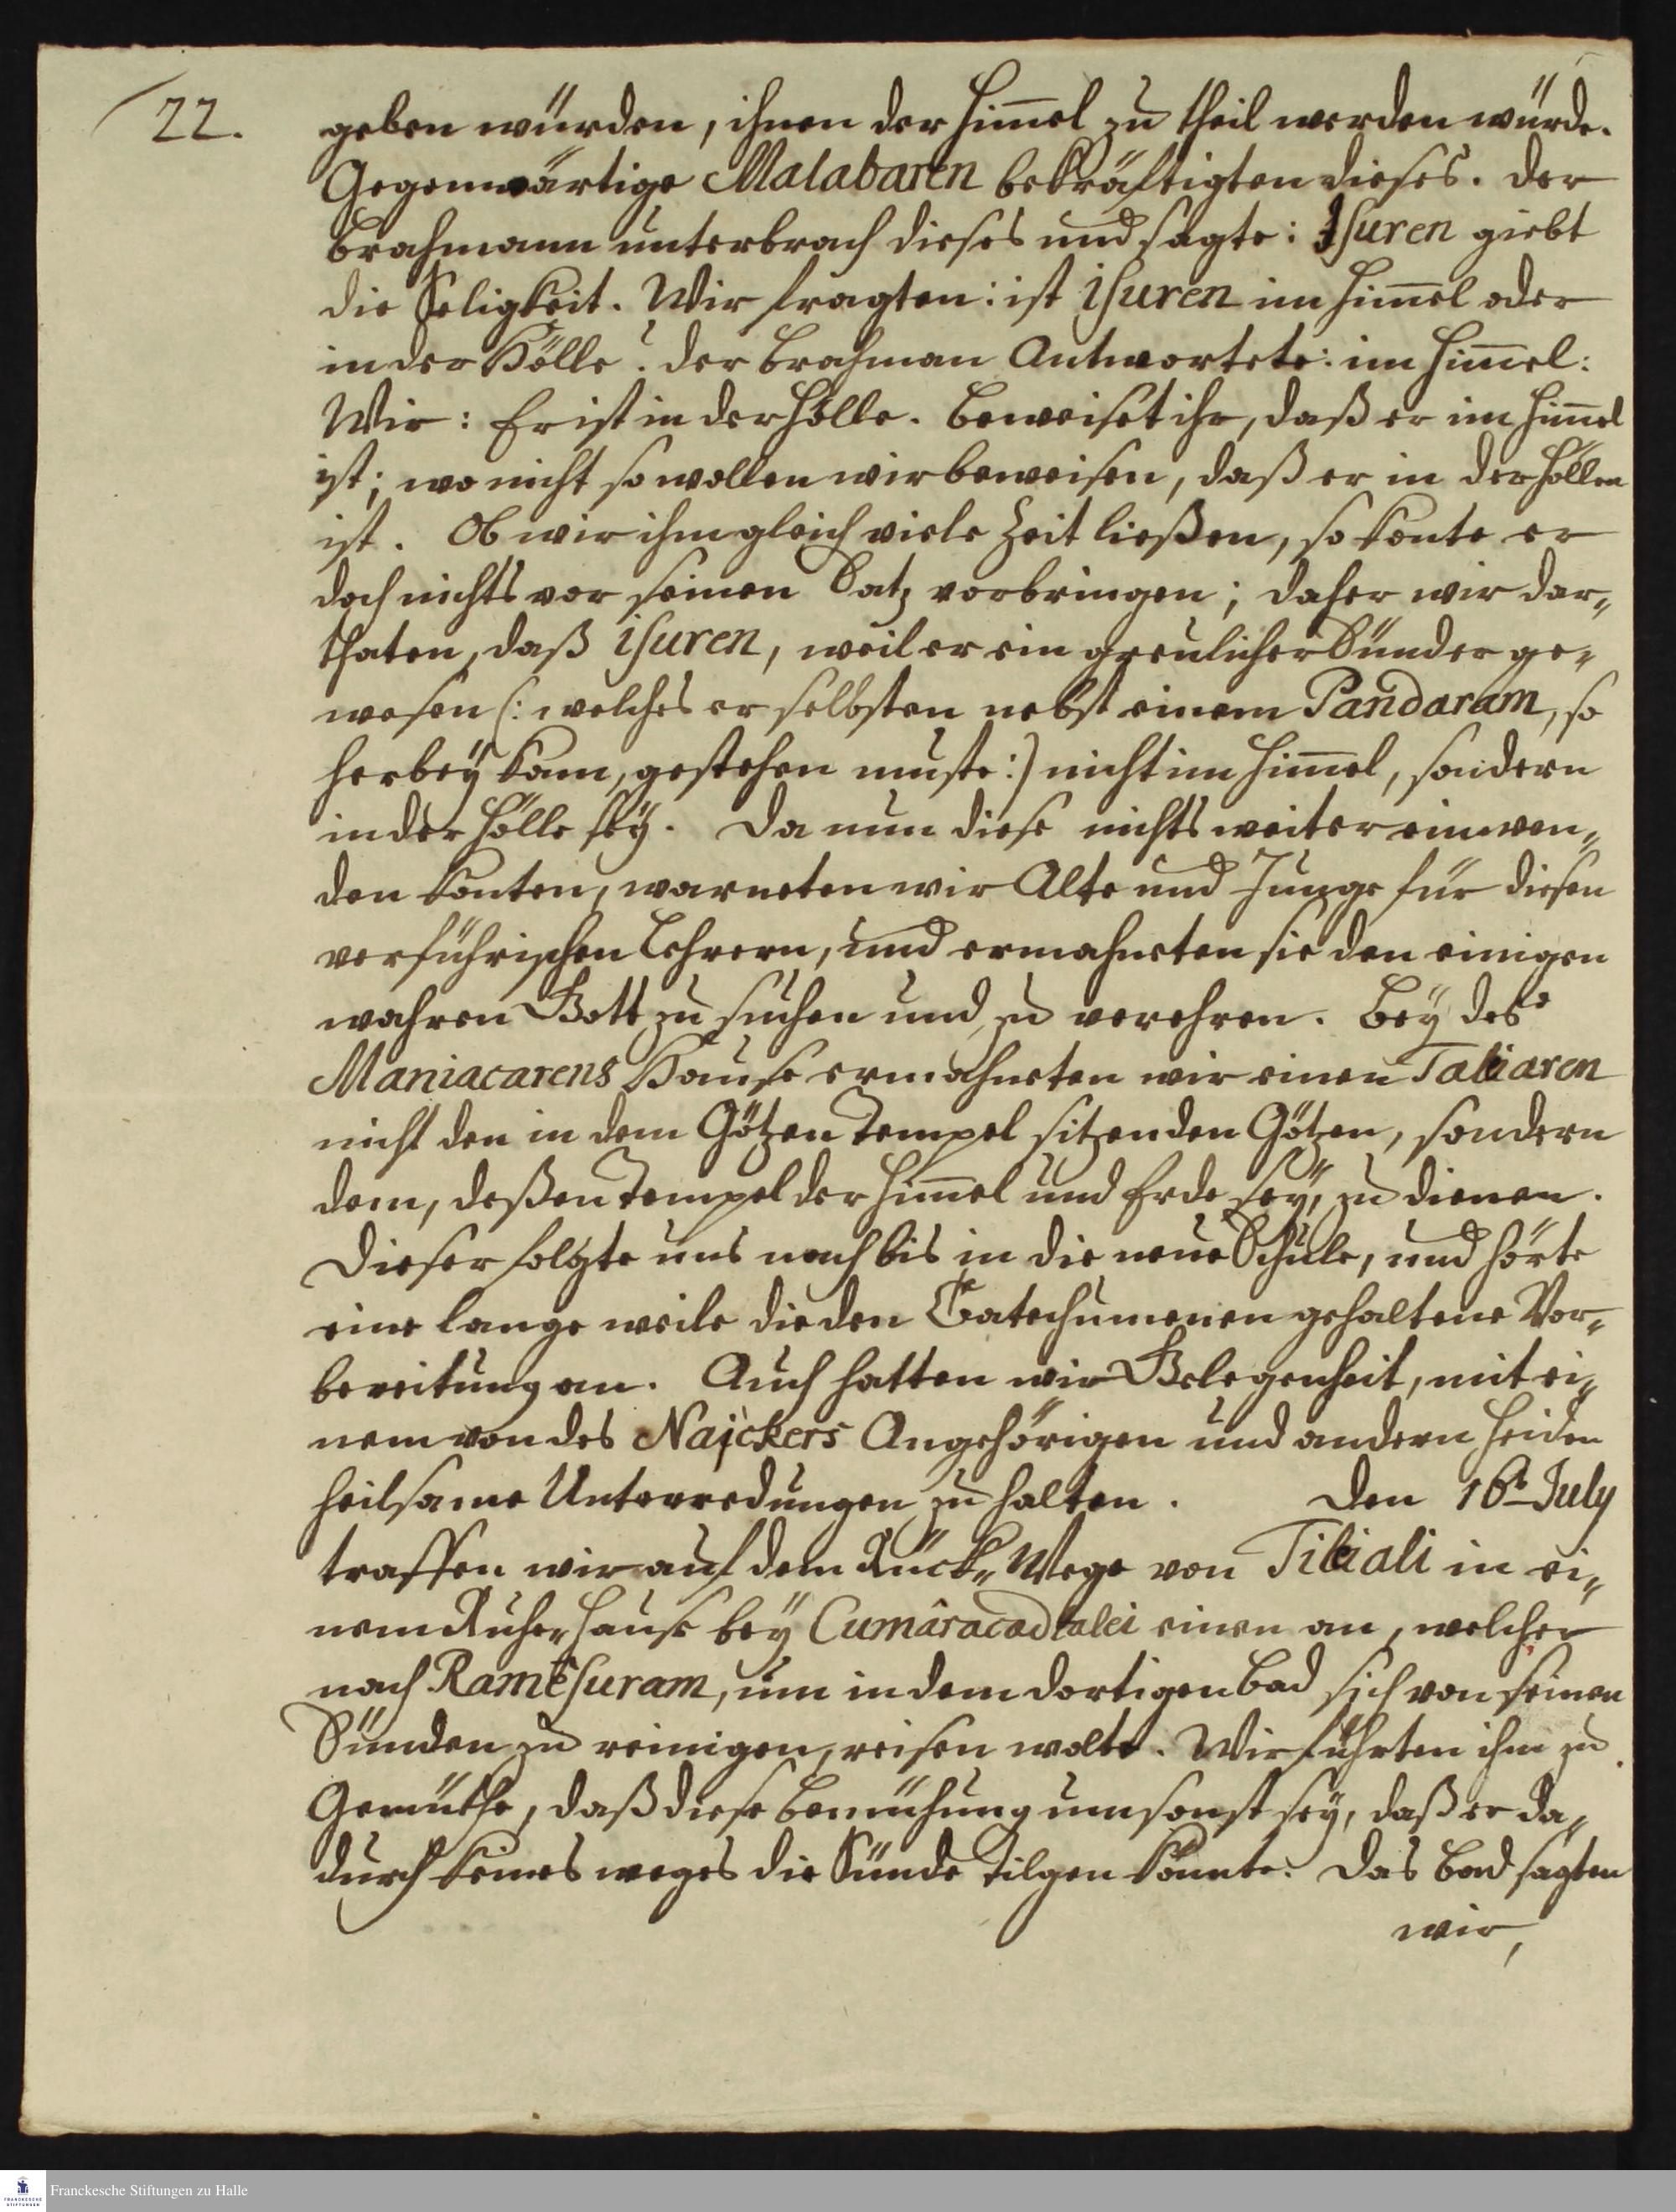 22.
geben würden, ihnen der Him̄el zu theil werden würde.
Gegenwärtige Malabaren bekräftigten dieses. Der
Brahmann unterbrach dieses und sagte: Isuren giebt
die Seligkeit. Wir fragten: ist isuren im Him̄el oder
in der Hölle? der Brahman Antwortete: im Him̄el:
Wir: Er ist in der Hölle. Beweiset ihr, daß er im Him̄el
ist; wo nicht so wollen wir beweisen, daß er in der Höllen
ist. Ob wir ihm gleich viele Zeit ließen, so konte er
doch nichts vor seinen Satz vorbringen; daher wir dar„
thaten, daß isuren, weil er ein greulicher Sünder ge„
wesen (: welches er selbsten nebst einem Pandaram, so
herbeÿ kam, gestehen muste:) nicht im Him̄el, sondern
in der Hölle seÿ. Da nun diese nichts weiter einwen„
den konten, warneten wir Alte und Junge für diesen
verführischen Lehrern, und ermahneten sie den einigen
wahren Gott zu suchen und zu verehren. Beÿ des
Maniacarens Hause ermahneten wir einen Taliaren
nicht den in dem Götzen Tempel sitzenden Götzen, sondern
dem, deßen Tempel der Him̄el und Erde seÿ, zu dienen.
Dieser folgte uns nach bis in die neue Schule, und hörte
eine lange weile die den Catechumenen gehaltene Vor„
bereitung an. Auch hatten wir Gelegenheit, mit ei„
nem von des Naickers Angehörigen und andern Heiden
heilsame Unterredungen zu halten. Den 16t July
traffen wir auf dem Rück„ Wege von Tiliali in ei„
nem Ruhe„ Hause beÿ Cumâracadtalei einen an, welcher
nach Ramêsuram, um in dem dortigen Bad sich von seinen
Sünden zu reinigen, reisen wolte. Wir führten ihm zu
Gemüthe, daß diese Bemühung umsonst seÿ, daß er da„
durch keines weges die Sünde tilgen könnte. Das Bad sagten
wir,
Franckesche Stiftungen zu Halle